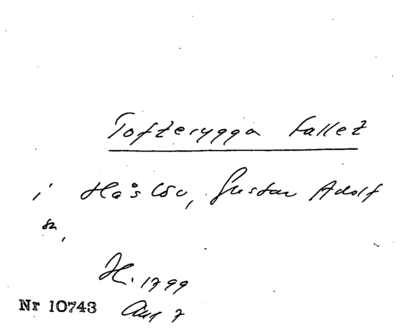 Tofterygga fallet
i Håslöv, Gustav Adolf
sn,
H. 1799
Nr 10743